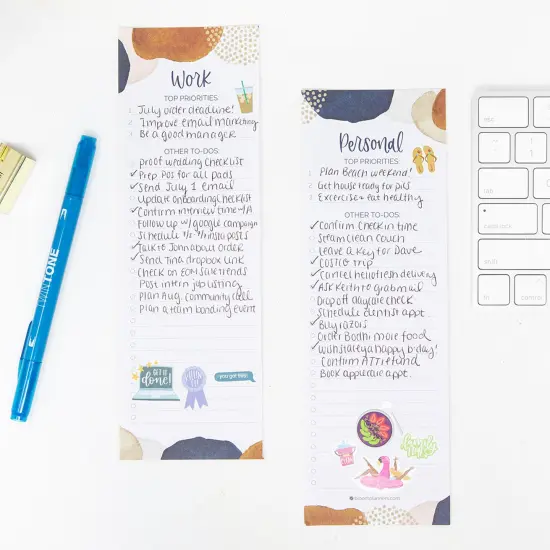 Work
TOP PRIORITIES:
1 July order deadline!
2 Improve email marketing
3 Be a good manager
OTHER TO-DOS:
proof wedding checklist
✓ Prep POs for all pads
✓ Send July 1 email
Update onboarding checklist
✓ Confirm interview time w/A
Follow up w/ google campaign
✓ Schedule insta posts
✓ Talk to John about order
✓ Send Tina dropbox link
Check on EOM sale trends
Post intern job listing
Plan Aug. community call
plan a team bonding event
GET IT
done!
you got this!
Personal
TOP PRIORITIES:
1 Plan Beach weekend!
2 Get house ready for pics
3 Excercise + eat healthy
OTHER TO-DOS:
✓ Confirm check in time
Steam clean couch
Leave a key for Dave
✓ COSTCO trip
✓ Cancel hellofresh delivery
✓ Ask Keith to grab mail
Drop off daycare check
✓ Schedule dentist appt.
✓ Buy razors
Order Bodhi more food
✓ Wish staley a happy b-day!
Confirm ATT refund
Book applecare appt.
TWINTONE
esc
tab
shift
fn
control